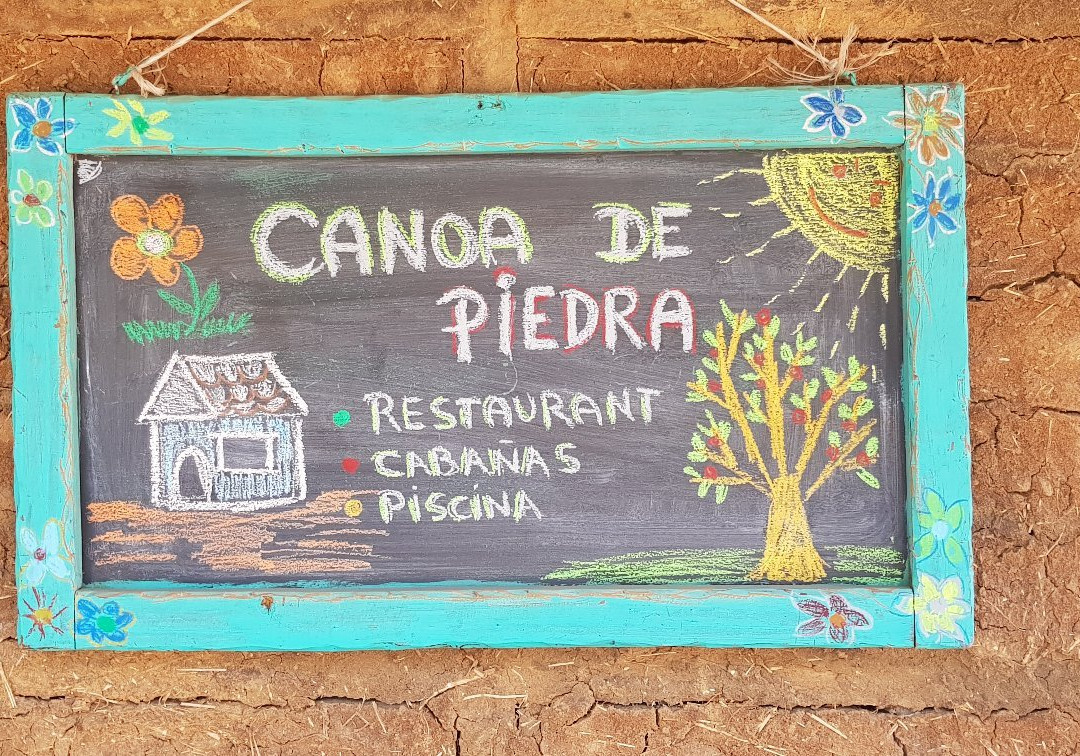 CANOA DE
PIEDRA
• RESTAURANT
• CABAÑAS
• PISCINA